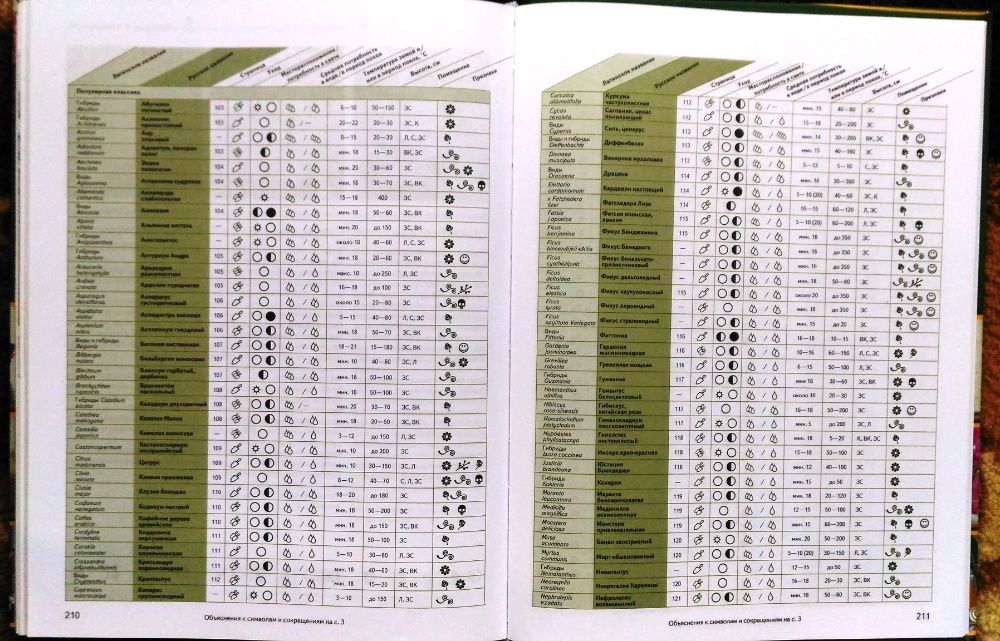 Латинское название
Русское название
Страница
Уход
Месторасположение/
потребность в свете
Средняя потребность
в воде/в период покоя
Температура зимой и/
или в период покоя, °C
Высота, см
Помещение
Признаки
Популярная классика
Гибриды Abutilon Абутилон гибридный 103 6—10 50—150 ЗС
103 20—22 20—30 ЗС, К
Acorus gramineus Аир злаковый 0—15 20—30 Л, З, ЗС
103 мин. 18 15—30 ВК, ЗС
104 мин. 20 30—60 ЗС
Виды Aglaonema Аглаонема кудрявая 104 мин. 18 30—70 ЗС, ВК
Allamanda cathartica Алламанда слабительная — 15—18 400 ЗС
Виды Alocasia Алоказия 104 мин. 18 50—60 ЗС, ВК
Alpinia vittata Альпиния виттата — мин. 20 до 150 ЗС, ВК
Гибриды Anigozanthos Анигозантос — около 10 40—60 Л, С, ЗС
Гибриды Anthurium Антуриум Андре 105 мин. 18 20—60 ЗС, ВК
Araucaria heterophylla Араукария разнолистная 105 макс. 10 до 250 Л, ЗС
Ardisia crenata Ардизия городчатая 105 16—18 до 100 ЗС
Asparagus densiflorus Аспарагус густоцветковый 106 около 15 20—80 ЗС
Aspidistra elatior Аспидистра высокая 106 5—15 40—80 Л, С, ЗС
Asplenium nidus Асплениум гнездовой 106 мин. 18 50—70 ЗС, ВК
Виды и гибриды Begonia Бегония лиственная 107 18—21 15—180 ЗС, ВК
Billbergia nutans Бильбергия поникшая 107 мин. 10 40—60 ЗС, Л
Blechnum gibbum Блехнум горбатый, дербянка 107 мин. 18 50—100 ЗС
Brachychiton rupestris Брахихитон наскальный 108 мин. 10 50—100 ЗС
Гибриды Caladium bicolor Каладиум двухцветный 108 мин. 20 30—70 ЗС, ВК
Calathea makoyana Калатея Макоя 108 мин. 18 20—50 ЗС, ВК
Camellia japonica Камелия японская — 3—12 до 150 Л, ЗС
Castanospermum Кастаноспермум австралийский 109 мин. 10 до 200 ЗС
Citrus madurensis Цитрус 109 мин. 10 30—150 ЗС, Л
Clivia miniata Кливия оранжевая 109 8—12 40—70 С, Л, ЗС
Clusia major Клузия большая 110 18—20 до 180 ЗС
Codiaeum variegatum Кодиеум пестрый 110 мин. 18 50—200 ЗС
Coffea arabica Кофейное дерево аравийское 110 мин. 18 до 150 ЗС, ВК
Cordyline terminalis Кордилина верхушечная 111 мин. 18 50—100 ЗС
Corokia cotoneaster Корокия кизильниковая 111 5—10 30—80 Л, ЗС
Crossandra infundibuliformis Кроссандра воронковидная 111 мин. 18 40—60 ЗС, ВК
Виды Cryptanthus Криптантус 112 мин. 18 15—20 ЗС, ВК
Cupressus macrocarpa Кипарис крупноплодный — 3—10 до 150 Л, ЗС
210
Объяснения к символам и сокращениям на с. 3
Латинское название
Русское название
Страница
Уход
Месторасположение/
потребность в свете
Средняя потребность
в воде/в период покоя
Температура зимой и/
или в период покоя, °C
Высота, см
Помещение
Признаки
Curcuma alismatifolia Куркума частухолистная 112 мин. 15 40—80 ЗС
Cycas revoluta Саговник, цикас поникающий 112 15—18 20—200 ЗС
Виды Cyperus Сыть, циперус 113 мин. 14 30—200 ВК, ЗС
Виды и гибриды Dieffenbachia Диффенбахия 113 мин. 15 40—160 ЗС
Dionaea muscipula Венерина мухоловка 113 5—12 5—10 С, ЗС
Виды Dracaena Драцена 114 мин. 16 30—300 ЗС
Elettaria cardamomum Кардамон настоящий 114 5—10 (20) 40—60 ЗС, К
x Fatshedera lizei Фатсхедера Лизе 114 10—15 60—120 Л, ЗС
Fatsia japonica Фатсия японская, аралия 115 5—10 (20) 60—200 Л, ЗС
Ficus benjamina Фикус Бенджамина 115 мин. 18 до 350 ЗС
Ficus binnendijkii «Alii» Фикус Бинедика — мин. 15 до 350 ЗС
Ficus cyathistipula Фикус бокальчато-прилистниковый — мин. 16 до 350 ЗС
Ficus deltoidea Фикус дельтовидный — мин. 18 50—80 ЗС
Ficus elastica Фикус каучуконосный 115 около 20 до 350 ЗС
Ficus lyrata Фикус лировидный — мин. 18 до 350 ЗС
Ficus sagittata Variegata Фикус стреловидный — мин. 15 до 20 ЗС
Виды Fittonia Фиттония 116 16—18 10—15 ВК, ЗС
Gardenia jasminoides Гардения жасминовидная 116 10—16 60—150 Л, С, ЗС
Grevillea robusta Гревиллея мощная 116 6—15 50—100 Л, ЗС
Гибриды Guzmania Гузмания 117 мин. 18 30—60 ЗС, ВК
Haemanthus albiflos Гемантус белоцветковый — около 10 20—30 ЗС
Hibiscus rosa-sinensis Гибискус, китайская роза 117 16—18 50—200 ЗС
Homalocladium platycladum Гомалокладиум плосковеточный 117 мин. 5 до 200 ЗС, Л
Hypoestes phyllostachya Гипоэстес листоколосный 118 мин. 18 5—20 К, ВК, ЗС
Гибриды Ixora coccinea Иксора ярко-красная 118 15—18 50—100 ЗС
Justicia brandeana Юстиция Брандеджи 118 мин. 12 40—100 ЗС
Гибриды Kohleria Колерия — мин. 15 до 50 ЗС
Maranta leuconeura Маранта беложилковатая 119 мин. 18 20—120 ЗС
Medinilla magnifica Мединилла великолепная 119 12—15 50—100 ЗС
Monstera deliciosa Монстера привлекательная 119 мин. 15 60—200 ЗС
Musa acuminata Банан заостренный 120 мин. 18 50—200 ЗС
Myrtus communis Мирт обыкновенный 120 5—10 (20) 30—150 Л, ЗС
Гибриды Nematanthus Нематантус — 12—15 до 50 ЗС
Neoregelia carolinae Неорегелия Каролины 120 16—18 20—30 ЗС, ВК
Nephrolepis exaltata Нефролепис возвышенный 121 мин. 18 50—80 ЗС, ВК
Объяснения к символам и сокращениям на с. 3
211